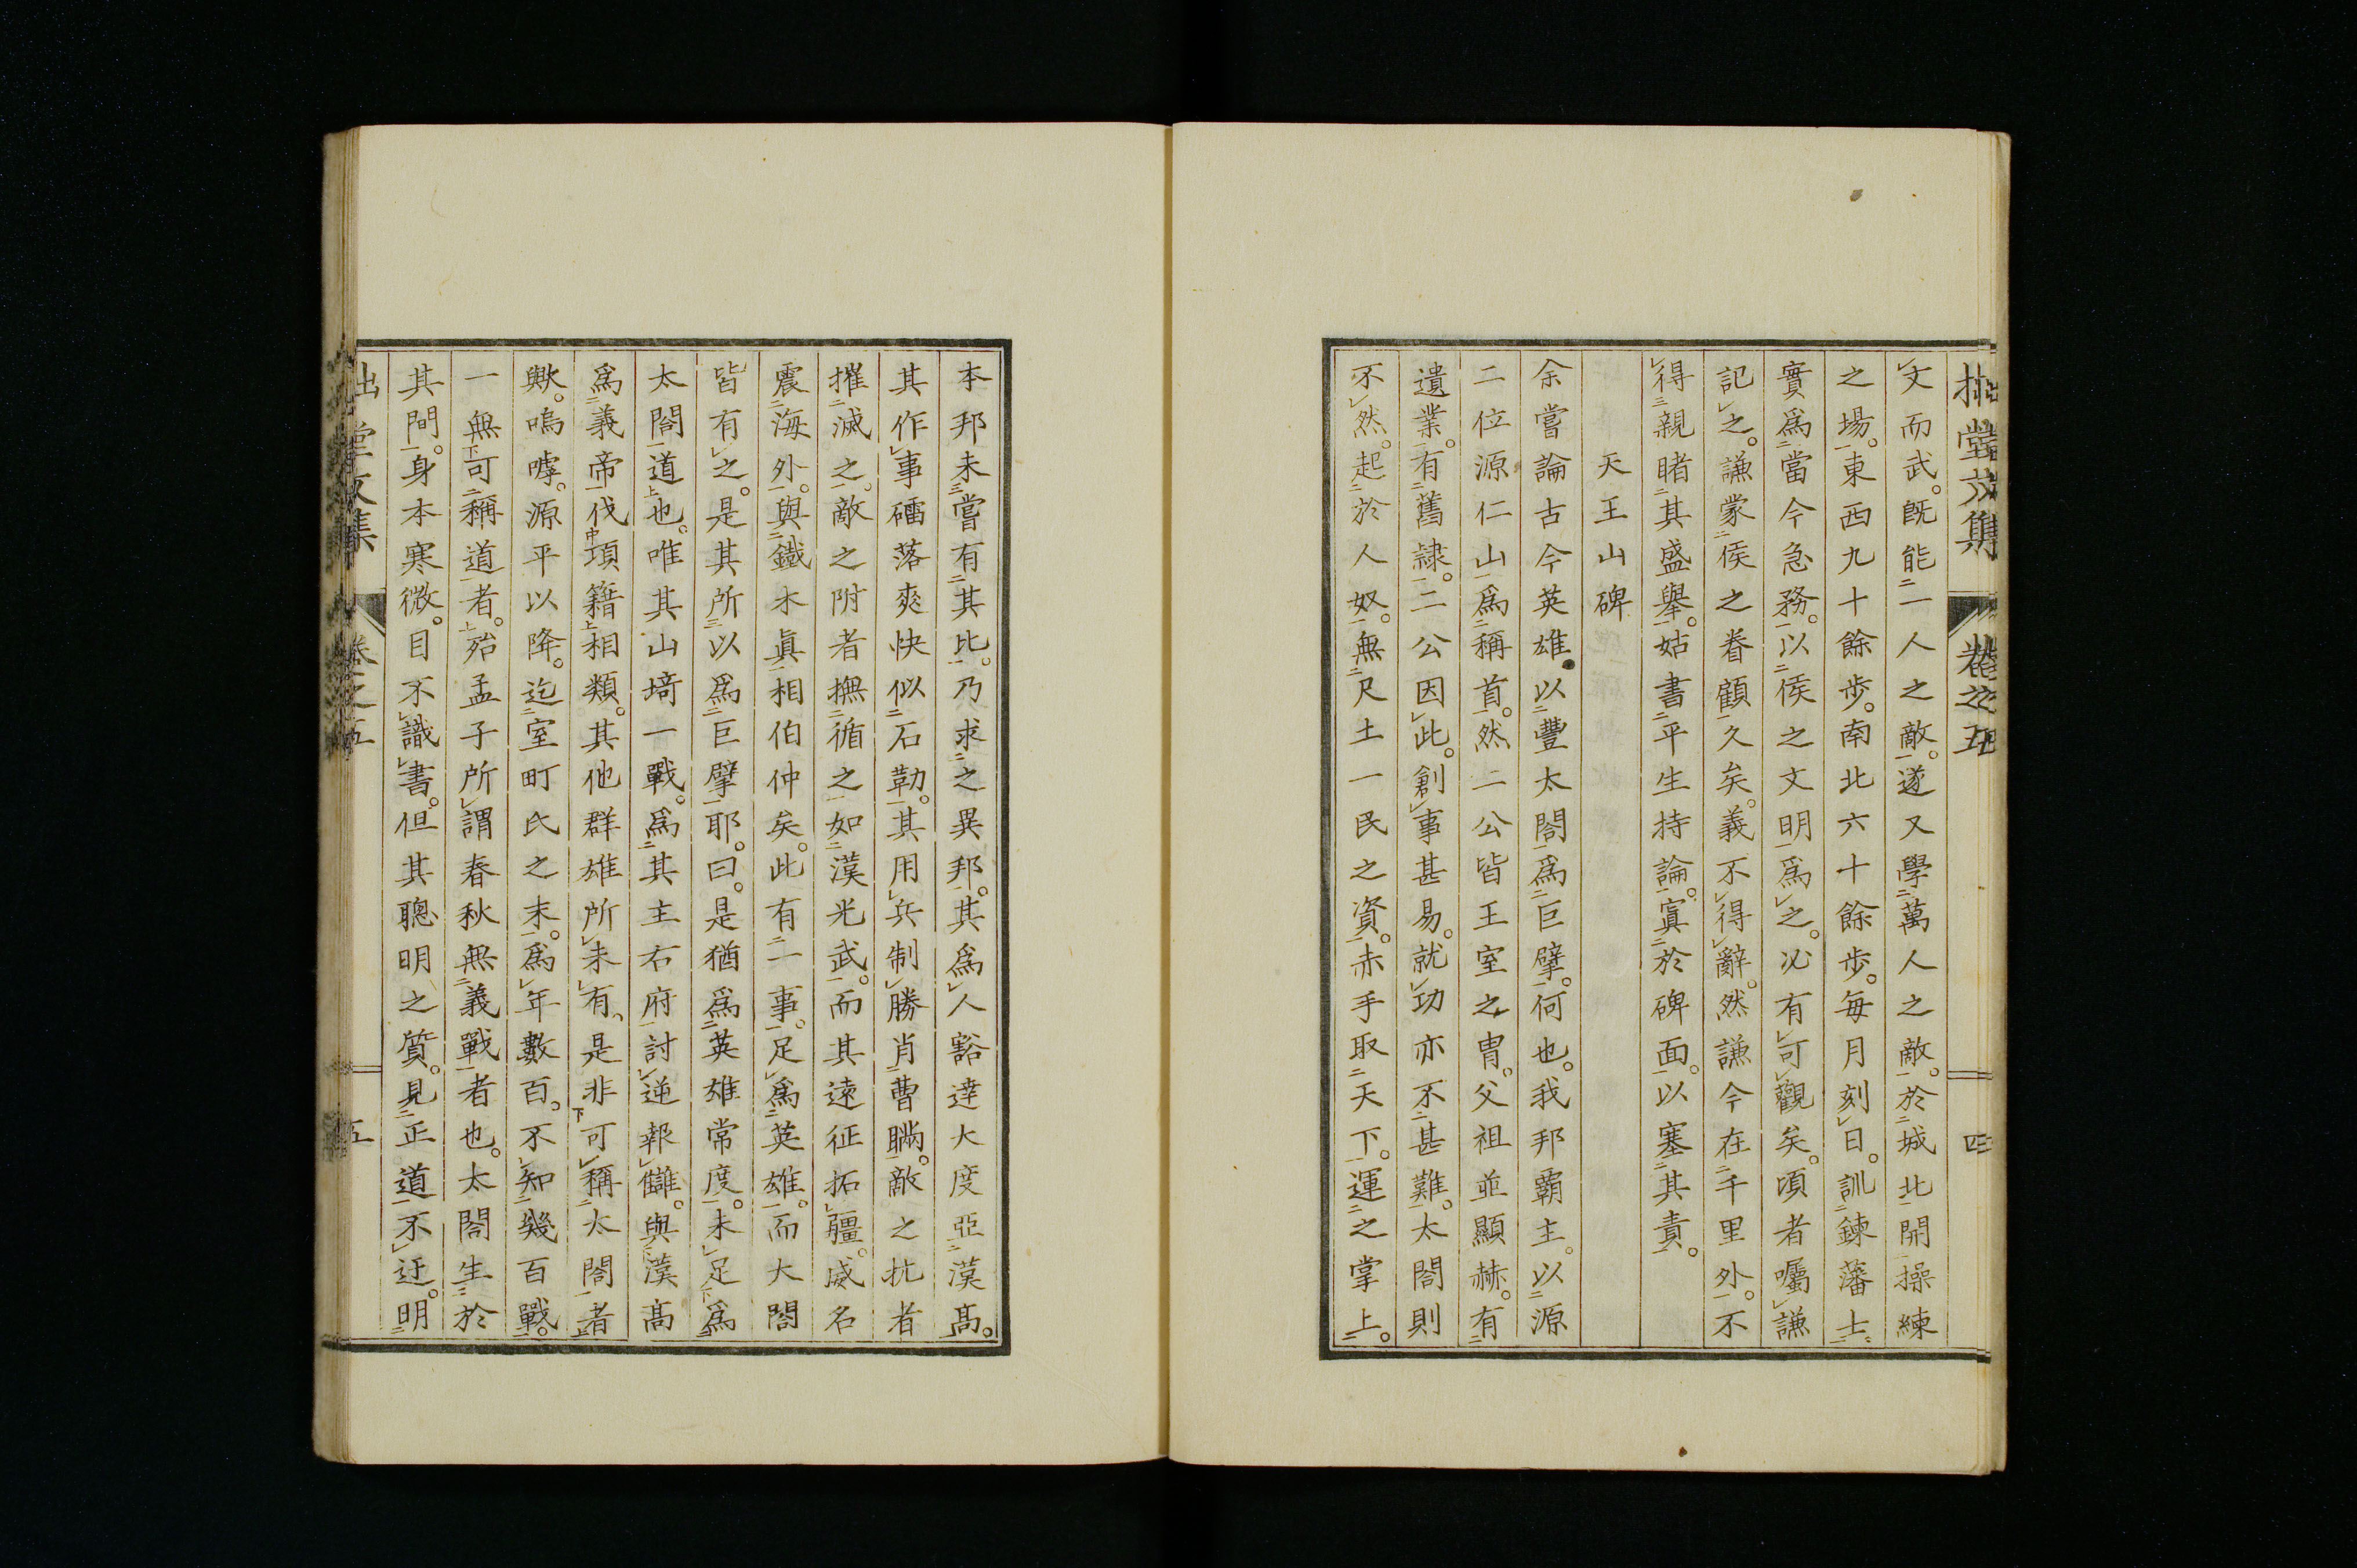 拙堂文集 卷之五 四
文而武。既能一人之敵。遂又學萬人之敵。於城北開操練
之場。東西九十餘步。南北六十餘步。每月刻日。訓鍊藩士。
實爲當今急務。以侯之文明爲之。必有可觀矣。頃者囑謙
記之。謙蒙侯之眷顧久矣。義不得辭。然謙今在千里外。不
得親睹其盛舉。姑書平生持論。寘於碑面。以塞其責。
天王山碑
余嘗論古今英雄。以豐太閤爲巨擘。何也。我邦霸主。以源
二位源仁山爲稱首。然二公皆王室之冑。父祖並顯赫。有
遺業。有舊隷。二公因此。創事甚易。就功亦不甚難。太閤則
不然。起於人奴。無尺土一民之資。赤手取天下。運之掌上。
本邦未嘗有其比。乃求之異邦。其爲人豁達大度亞漢高。
其作事礌落爽快似石勒。其用兵制勝肖曹瞞。敵之抗者
摧滅之。敵之附者撫循之。如漢光武。而其遠征拓疆。威名
震海外。與鐵木眞相伯仲矣。此有一事。足爲英雄。而大閤
皆有之。是其所以爲巨擘耶。曰。是猶爲英雄常度。未足爲
太閤道也。唯其山埼一戰。爲其主右府討逆報讎。與漢高
爲義帝伐項籍相類。其他群雄所未有。是非可稱太閤者
歟。嗚嘑。源平以降。迄室町氏之末。爲年數百。不知幾百戰。
一無可稱道者。殆孟子所謂春秋無義戰者也。太閤生於
其間。身本寒微。目不識書。但其聰明之質。見正道不迂。明
拙堂文集 卷之五 五